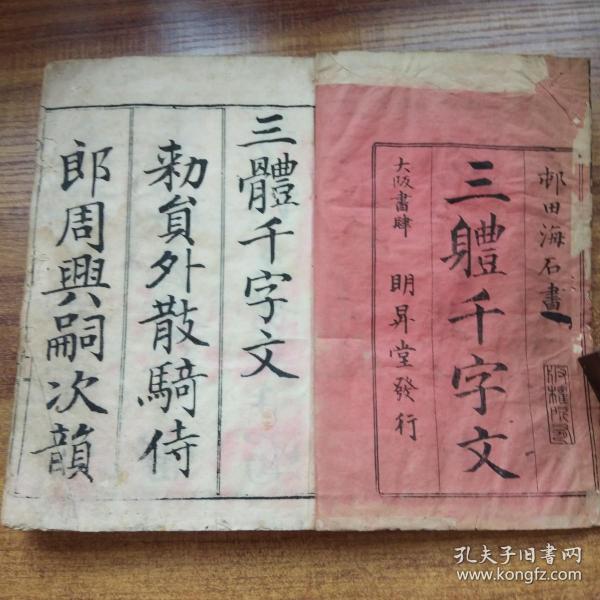 邨田海石書
三軆千字文
大阪書肆 明昇堂發行
三體千字文
勑貟外散騎侍
郎周興嗣次韻
孔夫子旧书网
www.kongfz.com